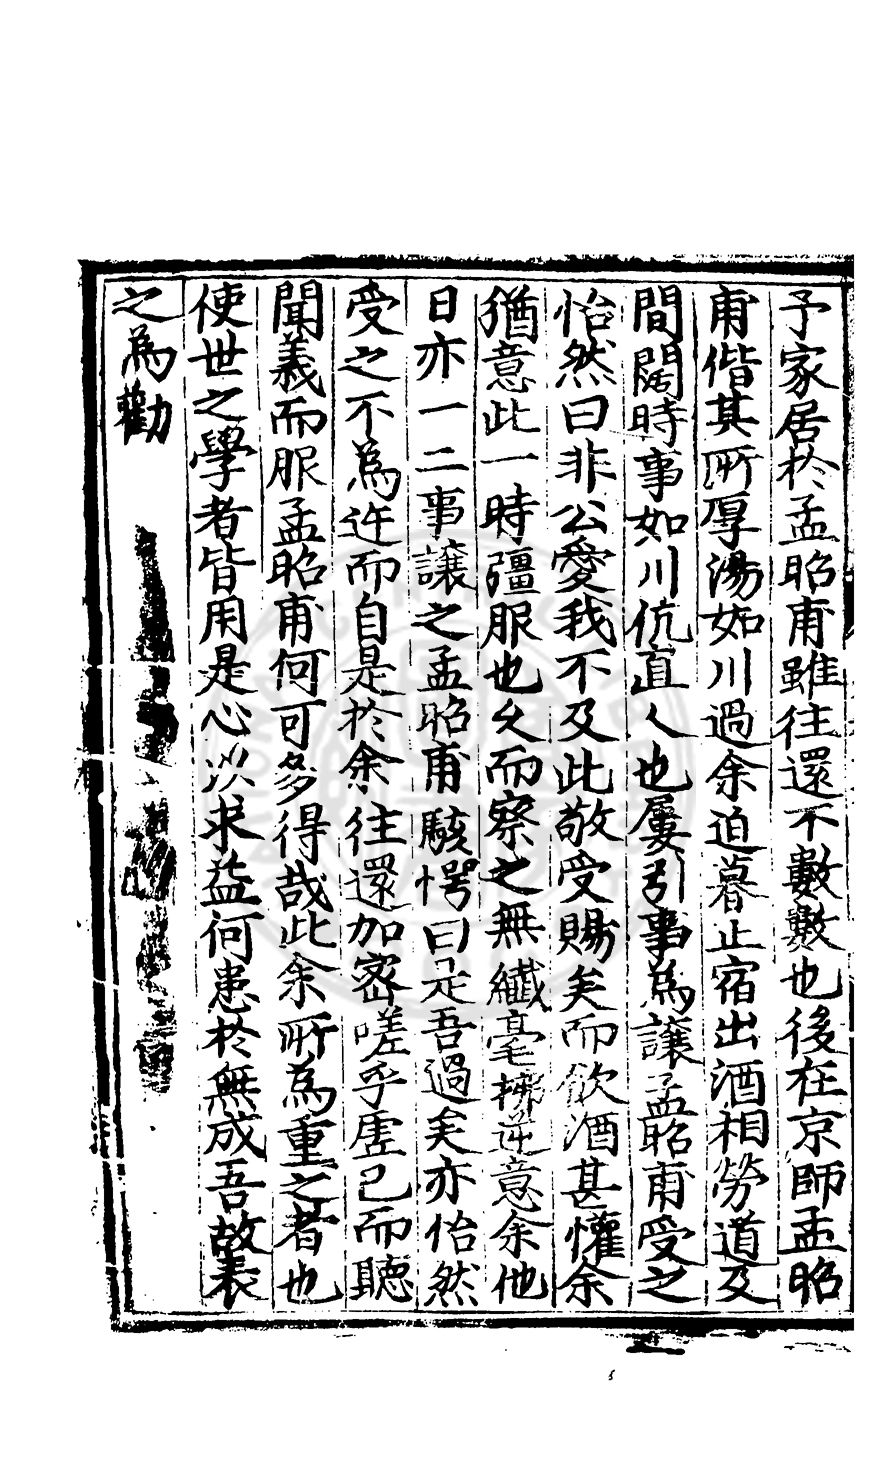 予家居於孟昭甫雖往還不數數也後在京師孟昭
甫偕其所厚湯如川過余迫暮止宿出酒相勞道及
間闊時事如川伉直人也屢引事為讓孟昭甫受之
怡然曰非公愛我不及此敬受賜矣而飲酒甚懽余
猶意此一時彊服也久而察之無纎毫拂逆意余他
日亦一二事讓之孟昭甫駭愕曰是吾過矣亦怡然
受之不為迕而自是於余往還加密嗟乎虗己而聽
聞義而服孟昭甫何可多得哉此余所為重之者也
使世之學者皆用是心以求益何患於無成吾故表
之為勸